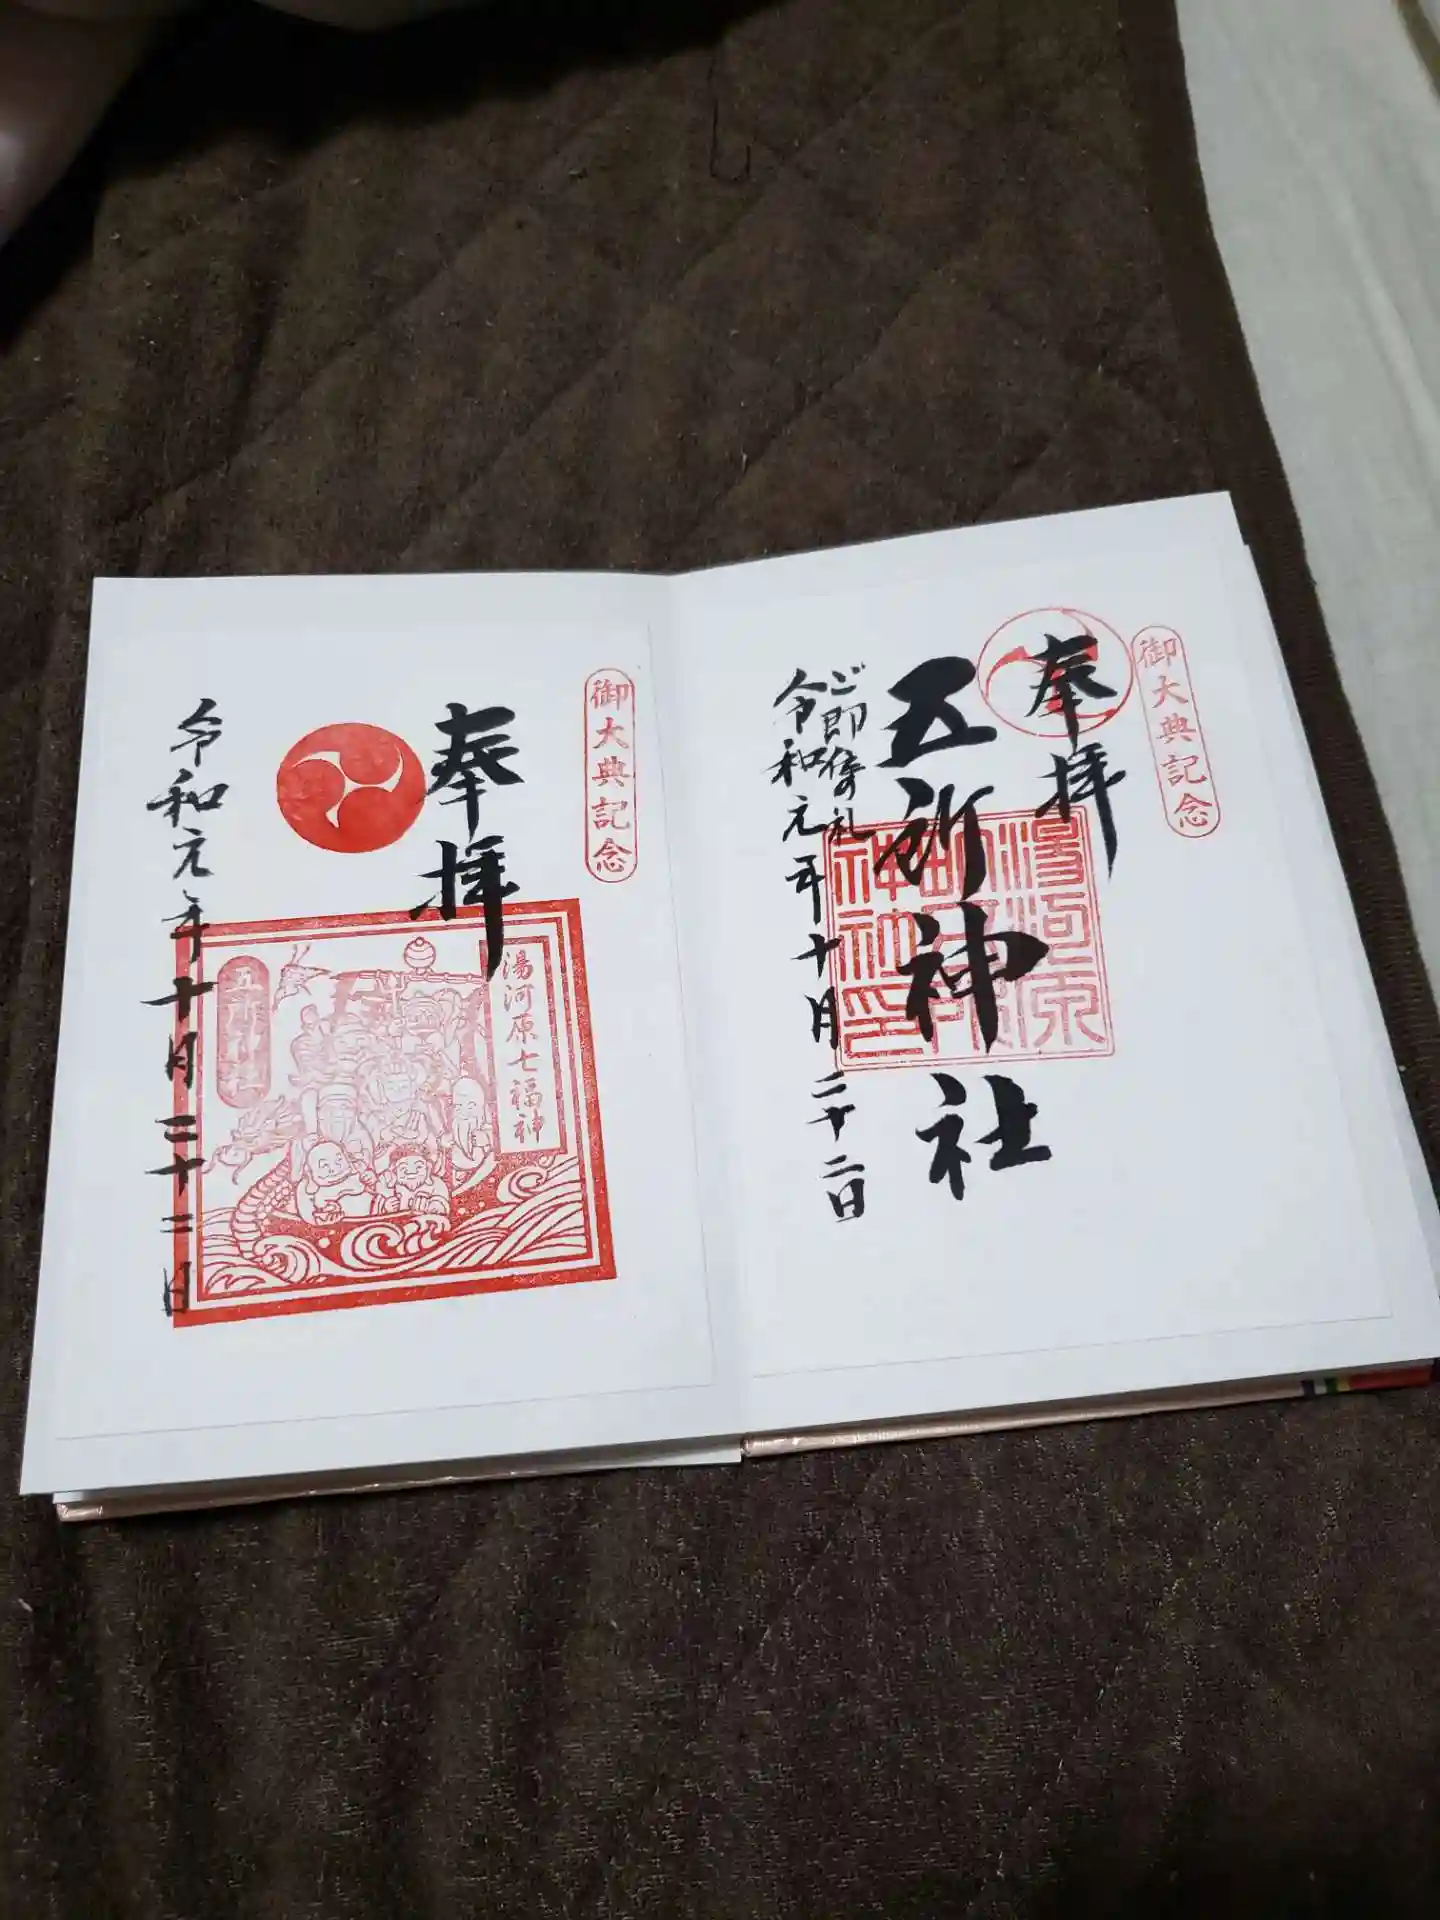 御大典記念
奉拝
五所神社
湯河原
神社印
ご即位の礼
令和元年十月二十二日
御大典記念
奉拝
湯河原七福神
五所神社
令和元年十月二十二日